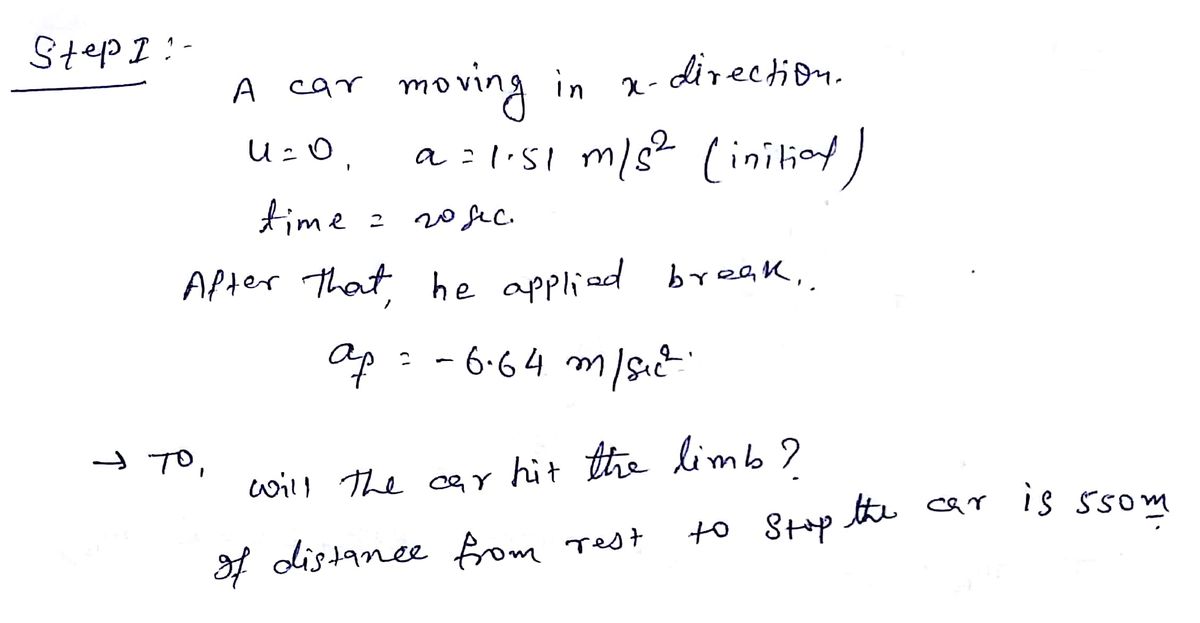 Step I :-
A car moving in x-direction.
u = 0, a = 1.51 m/s² (initial)
time = 20 sec.
After that, he applied break..
a_f = - 6.64 m/sec².
→ TO,
will the car hit the limb?
If distance from rest to stop the car is 550m